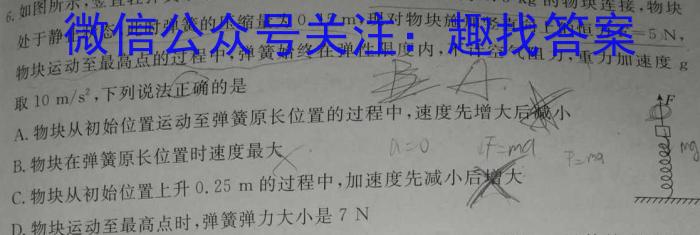 6.如图所示,竖直
kg 的物块连接,物块
处于静
弹簧的压缩量为0.
m
对物块施
=5 N,
微信公众号关注：趣找答案
物块运动至最高点的过程中,弹簧始终在弹性限度内,
空气阻力,重力加速度 g
取 10 m/s²,下列说法正确的是
B A
A.物块从初始位置运动至弹簧原长位置的过程中,速度先增大后减小
B.物块在弹簧原长位置时速度最大
a=0 F=ma F=ma
C.物块从初始位置上升 0.25 m 的过程中,加速度先减小后增大
D.物块运动至最高点时,弹簧弹力大小是 7 N
F
mg